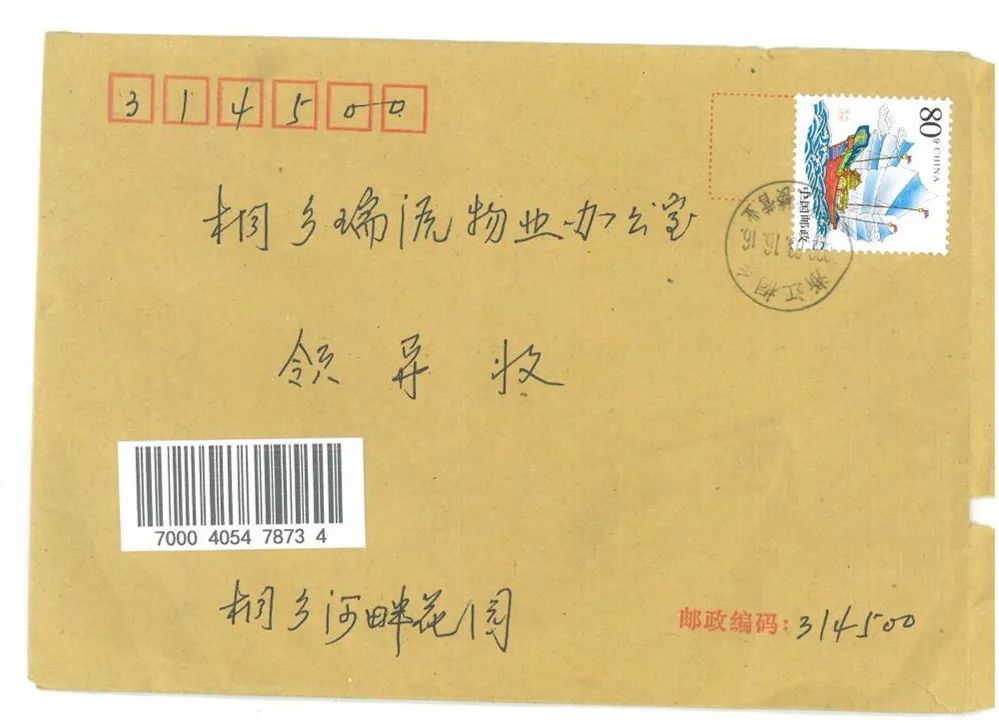 314500
80分 CHINA
中国邮政
桐乡瑞流物业办公室
浙江桐
领导收
7000 4054 7873 4
桐乡河畔花园
邮政编码：314500